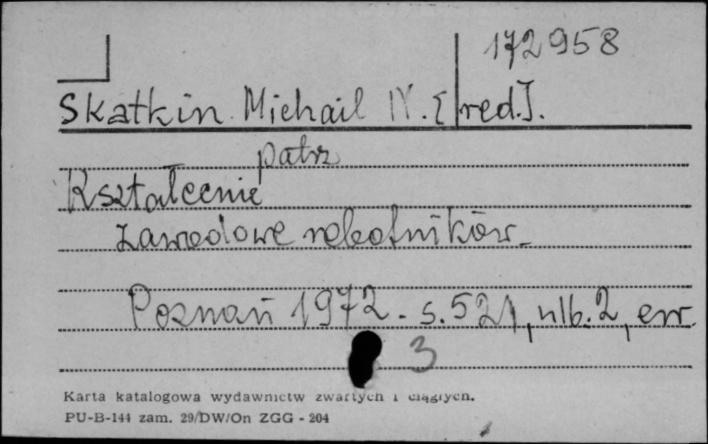 172958
Skatkin Michail N. [red.].
patrz
Kształcenie
zawodowe robotników.
Poznań 1972. s. 521, nlb. 2, err.
3
Karta katalogowa wydawnictw zwartych i ciągłych.
PU-B-144 zam. 29/DW/On ZGG - 204